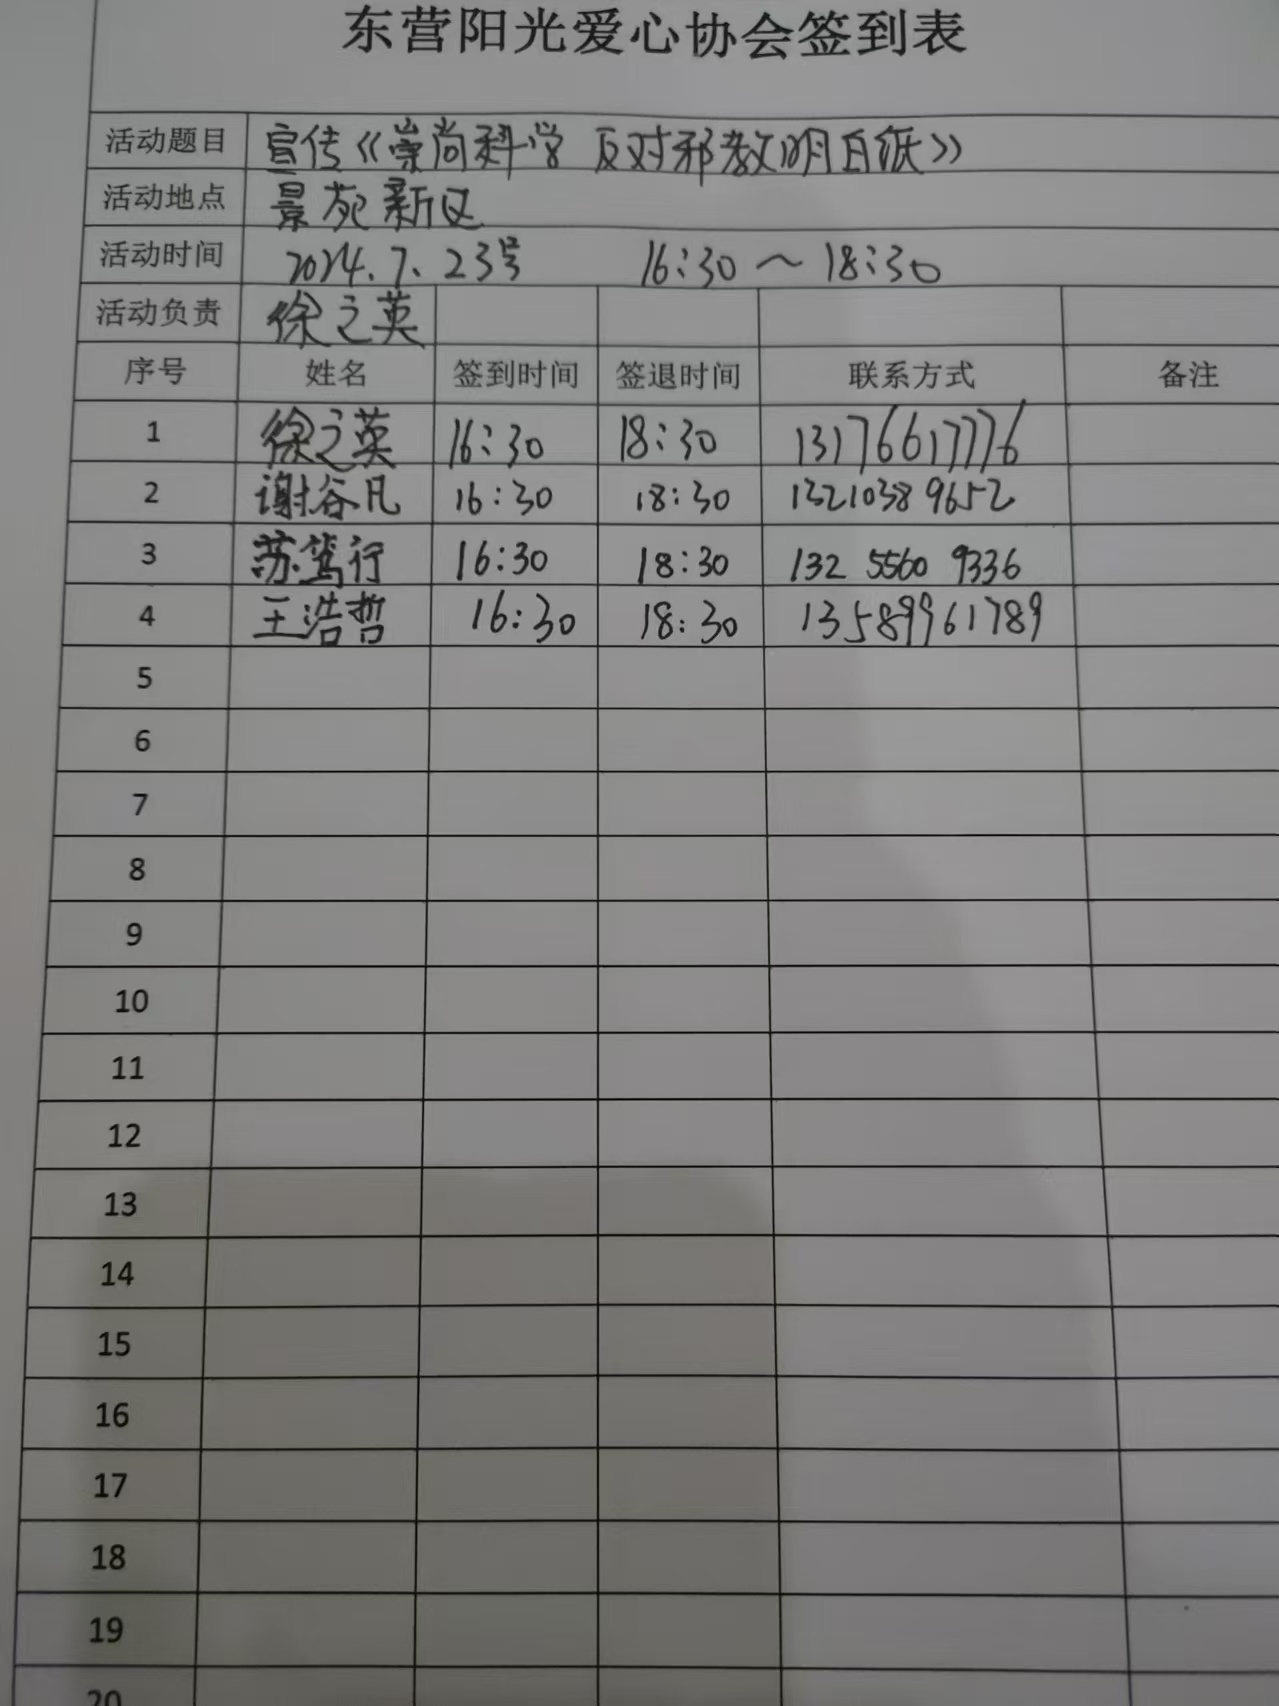 东营阳光爱心协会签到表
活动题目 宣传《崇尚科学 反对邪教明白纸》
活动地点 景苑新区
活动时间 2024.7.23号 16:30～18:30
活动负责 徐之英
序号 姓名 签到时间 签退时间 联系方式 备注
1 徐之英 16:30 18:30 13176617776
2 谢谷凡 16:30 18:30 13210389652
3 苏笃行 16:30 18:30 132 5560 9336
4 王浩哲 16:30 18:30 13589961789
5
6
7
8
9
10
11
12
13
14
15
16
17
18
19
20